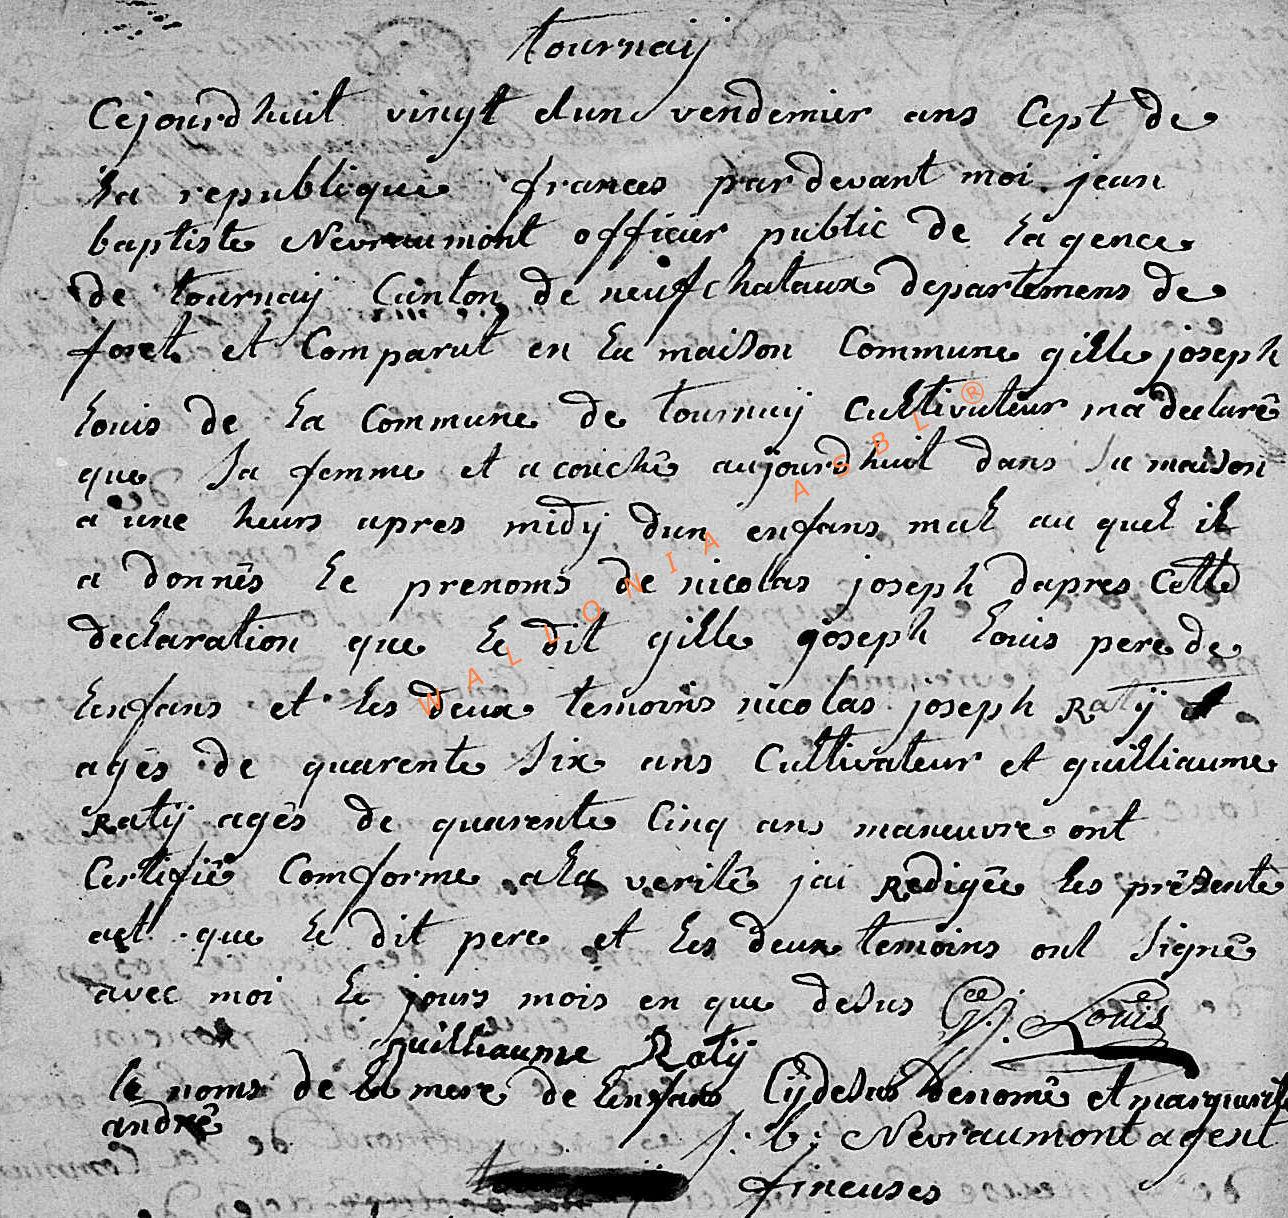 tournaij
Cejourdhuit vingt etun vendemier ans Cept de
la republique frances par devant moi jean
baptiste Nevraumont officier public de lagence
de tournaij Canton de neufchataux departemens de
foret et Comparut en la maison Commune gille joseph
louis de la Commune de tournaij Cultivateur ma declarê
que sa femme et acouchê aujourdhuit dans sa maison
a une heurs apres midij dun enfans mal au quel il
a donnês le prenoms de nicolas joseph dapres Cette
declaration que le dit gille joseph louis pere de
lenfans et les deux temoins nicolas joseph Ratij
agês de quarente six ans Cultivateur et guilliaume
Ratij agês de quarente Cinq ans maneuvre ont
Certifiê Comforme ala veritê jai Redigêe les prêsente
act que le dit pere et les deux temoins ont signê
avec moi le jours mois en que desus G J. Louis
guilliaume Ratij
le noms de la mere de lenfans Cijdesus denomê et marguerite
andrê
j: b: Nevraumont agent
fineuses
WALLONIA ASBL ®